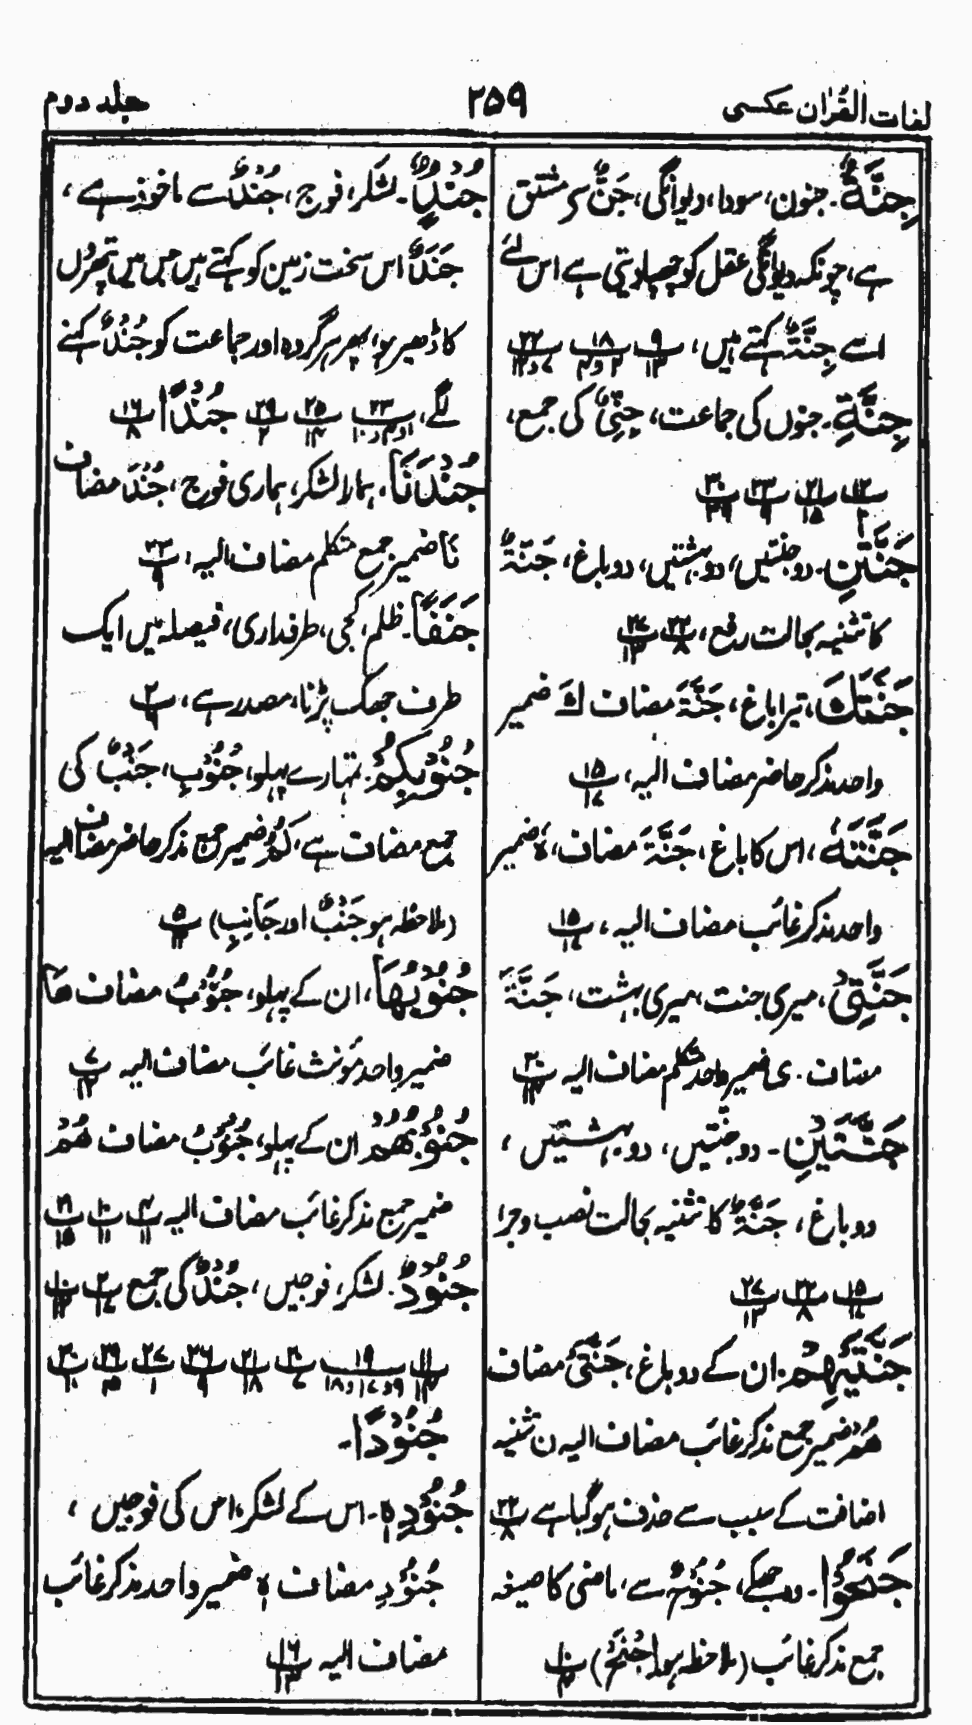 لغات القرآن عکسی
۲۵۹
جلد دوم
جِنَّةٌ۔ جنون، سودا، دیوانگی، جَنٌّ سے مشتق
ہے، چونکہ دیوانگی عقل کو چھپا دیتی ہے اس لئے
اسے جِنَّةٌ کہتے ہیں،
جِنَّةٍ۔ جنوں کی جماعت، جِنِّیٌّ کی جمع،
جَنَّتٰنِ۔ دو جنتیں، دو بہشتیں، دو باغ، جَنَّةٌ
کا تثنیہ بحالت رفع،
جَنَّتَكَ، تیرا باغ، جَنَّةَ مضاف كَ ضمیر
واحد مذکر حاضر مضاف الیہ،
جَنَّتَهٗ، اس کا باغ، جَنَّةَ مضاف، هٗ ضمیر
واحد مذکر غائب مضاف الیہ،
جَنَّتِیْ، میری جنت، میری بہشت، جَنَّةَ
مضاف۔ ی ضمیر واحد متکلم مضاف الیہ
جَنَّتَیْنِ۔ دو جنتیں، دو بہشتیں،
دو باغ، جَنَّةٌ کا تثنیہ بحالت نصب وجر
جَنَّتَیْهِمْ۔ ان کے دو باغ، جَنَّتَیْ مضاف
هُمْ ضمیر جمع مذکر غائب مضاف الیہ ن تثنیہ
اضافت کے سبب سے حذف ہو گیا ہے
جَنَحُوْا۔ وہ جھکے، جُنُوْحٌ سے، ماضی کا صیغہ
جمع مذکر غائب (ملاحظہ ہو اِجْنَحْ)
جُنْدٌ۔ لشکر، فوج، جُنْدٌ سے ماخوذ ہے،
جَنَدٌ اس سخت زمین کو کہتے ہیں جس میں پتھروں
کا ڈھیر ہو، پھر ہر گروہ اور جماعت کو جُنْدٌ کہنے
لگے، جُنْدًا
جُنْدَنَا، ہمارا لشکر، ہماری فوج، جُنْدَ مضاف
نَا ضمیر جمع متکلم مضاف الیہ،
جَنَفًا۔ ظلم، کجی، طرفداری، فیصلہ میں ایک
طرف جھک پڑنا، مصدر ہے،
جُنُوْبُكُمْ۔ تمہارے پہلو، جُنُوْبِ، جَنْبٌ کی
جمع مضاف ہے، كُمْ ضمیر جمع مذکر حاضر مضاف الیہ
(ملاحظہ ہو جَنْبٌ اور جَانِبِ)
جُنُوْبُهَا، ان کے پہلو، جُنُوْبُ مضاف هَا
ضمیر واحد مؤنث غائب مضاف الیہ
جُنُوْبُهُمْ ان کے پہلو، جُنُوْبُ مضاف هُمْ
ضمیر جمع مذکر غائب مضاف الیہ
جُنُوْدٌ۔ لشکر، فوجیں، جُنْدٌ کی جمع
جُنُوْدًا۔
جُنُوْدِهٖ۔ اس کے لشکر، اس کی فوجیں،
جُنُوْدِ مضاف هٖ ضمیر واحد مذکر غائب
مضاف الیہ